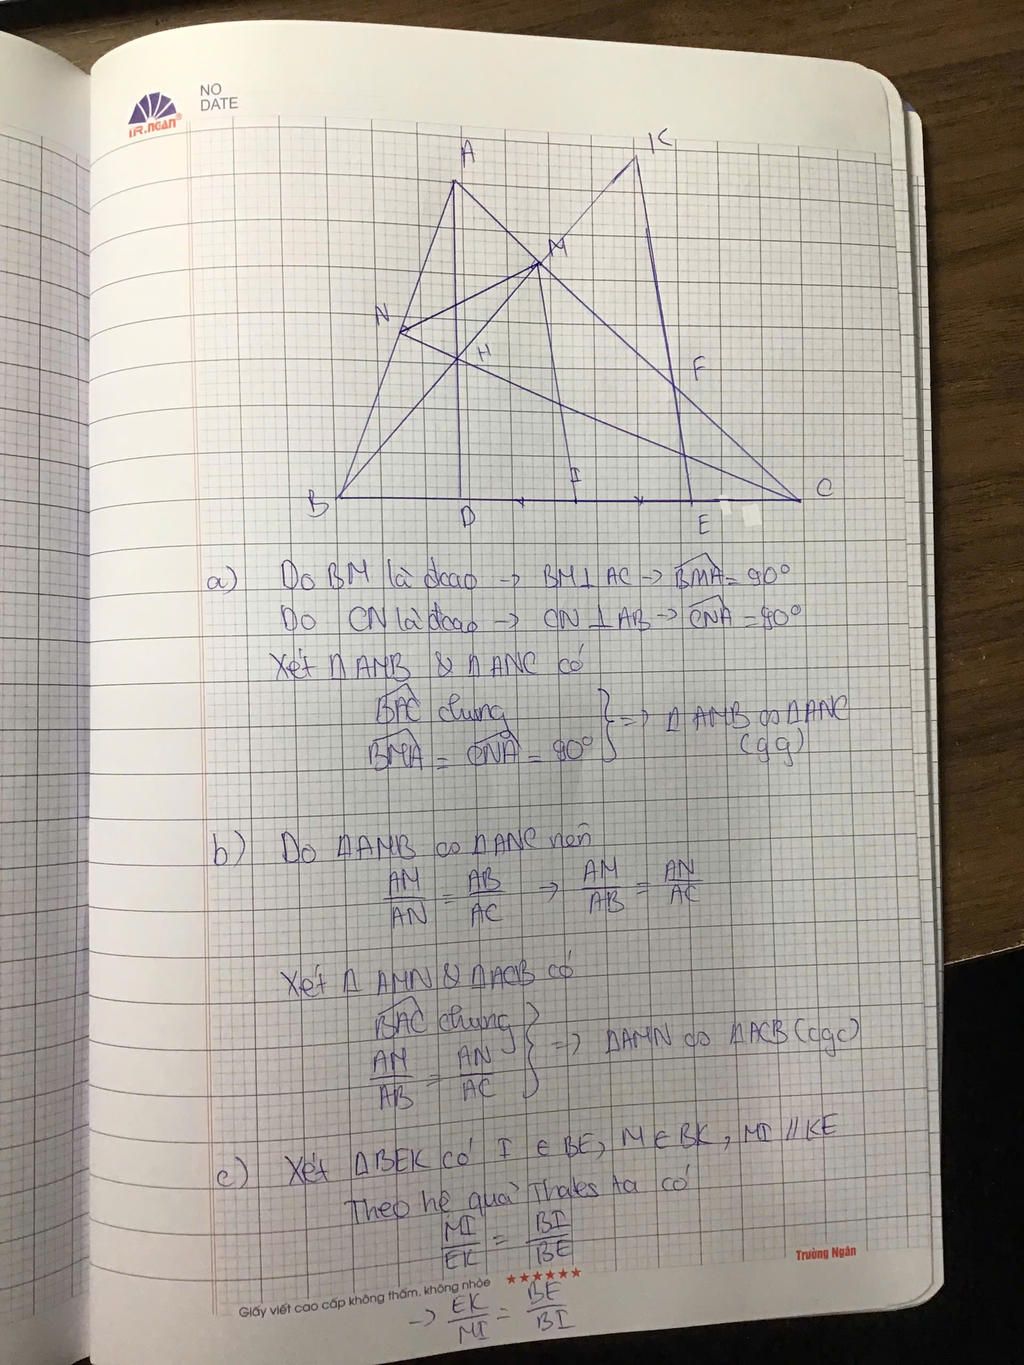 NO
DATE
TR.NGAN®
A
K
M
N
H
F
I
B
D
E
C
a) Do BM là đcao → BM ⊥ AC → BMA = 90°
Do CN là đcao → CN ⊥ AB → CNA = 90°
Xét Δ AMB & Δ ANC có
BAC chung
BMA = CNA = 90°
} => Δ AMB ∽ Δ ANC
(gg)
b) Do Δ AMB ∽ Δ ANC nên
AM/AN = AB/AC → AM/AB = AN/AC
Xét Δ AMN & Δ ACB có
BAC chung
AM/AB = AN/AC
} => Δ AMN ∽ Δ ACB (cgc)
c) Xét Δ BEK có I ∈ BE, M ∈ BK, MI // KE
Theo hệ quả Thales ta có
MI/EK = BI/BE
Trường Ngân
Giấy viết cao cấp không thấm, không nhòe ★★★★★★
→ EK/MI = BE/BI